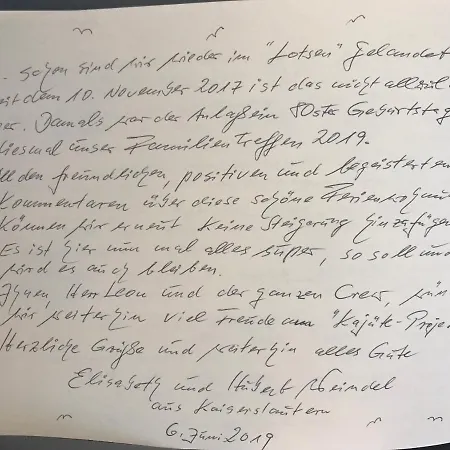 . schon sind wir wieder im "Lotsen" gelandet
it dem 10. November 2017 ist das nicht allzul
er. Damals war der Anlaß ein 80ster Geburtstag
diesmal unser Familientreffen 2019.
ll den freundlichen, positiven und begeisterten
Kommentaren über diese schöne Ferienwohnun
können wir erneut keine Steigerung hinzufügen
Es ist hier nun mal alles super, so soll und
wird es auch bleiben.
Ihnen, Herr Leon und der ganzen Crew, wün
wir weiterhin viel Freude am "Kajüte-Proje
Herzliche Grüße und weiterhin alles Gute
Elisabeth und Hubert Weindel
aus Kaiserslautern
6. Juni 2019